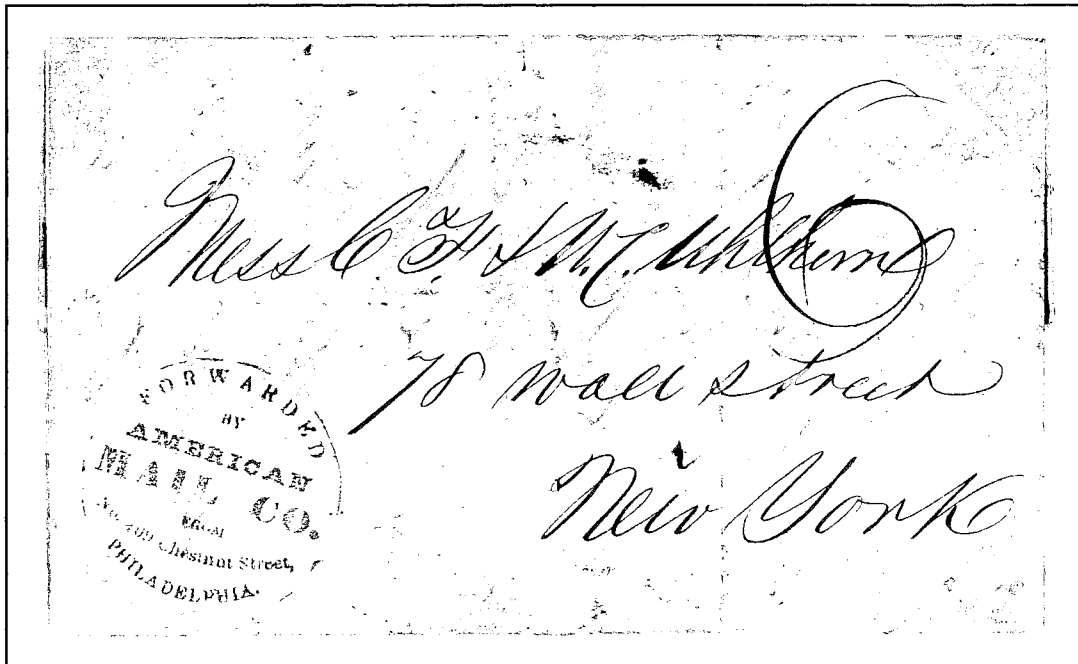 6
Mess C. F. & W. C.
78 Wall Street
New York
FORWARDED
BY
AMERICAN
MAIL CO.
FROM
No. 109 Chesnut Street,
PHILADELPHIA.